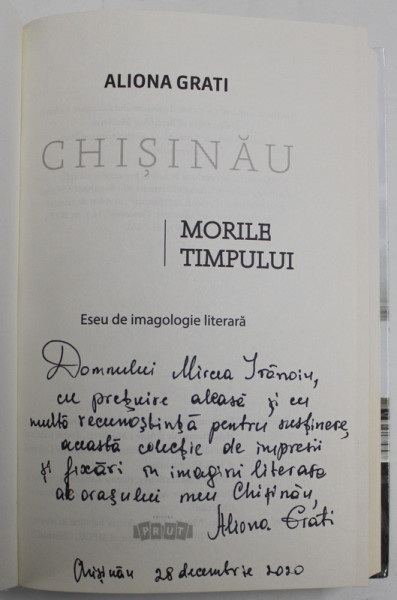 ALIONA GRATI
CHIȘINĂU
MORILE
TIMPULUI
Eseu de imagologie literară
Domnului Mircea
cu prețuire aleasă și cu
multă recunoștință pentru susținere,
această colecție de impresii
și fixări în imagini literare
ale orașului meu Chișinău,
Aliona Grati
PRUT
Chișinău 28 decembrie 2020